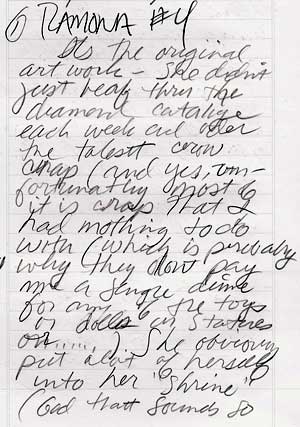 ⑥ RAMONA #4
Its the original
art work - She didn't
just leaf thru the
diamond cataloge
each week and order
the latest crow
crap (and yes, un-
fortunatly most of
it is crap that I
had nothing to do
with (which is probably
why they don't pay
me a single dime
for any of the toys
or dolls or statues
or.....,) She obviously
put alot of herself
into her "Shrine"
(God that sounds so